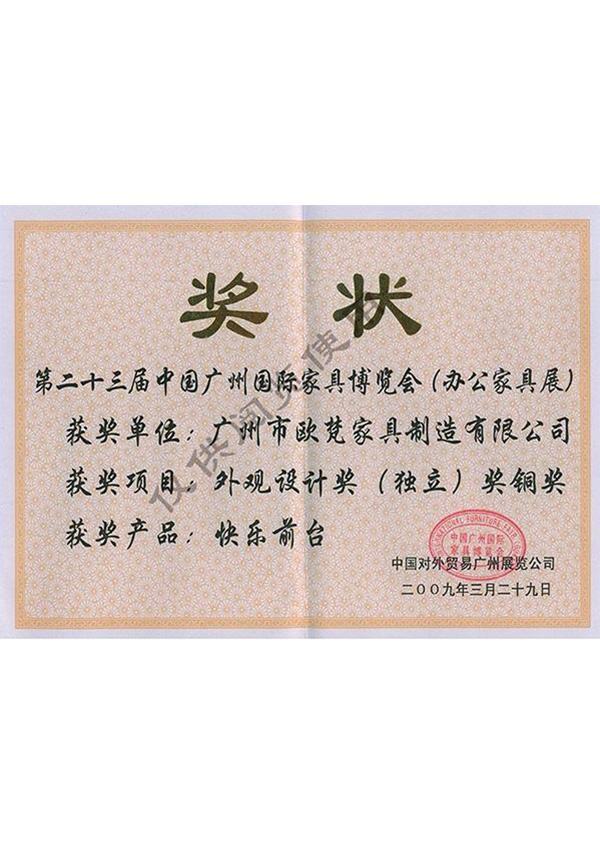 奖状
第二十三届中国广州国际家具博览会(办公家具展)
获奖单位：广州市欧梵家具制造有限公司
获奖项目：外观设计奖（独立）奖铜奖
获奖产品：快乐前台
中国广州国际
家具博览会
中国对外贸易广州展览公司
二〇〇九年三月二十九日
仅供阅览使用